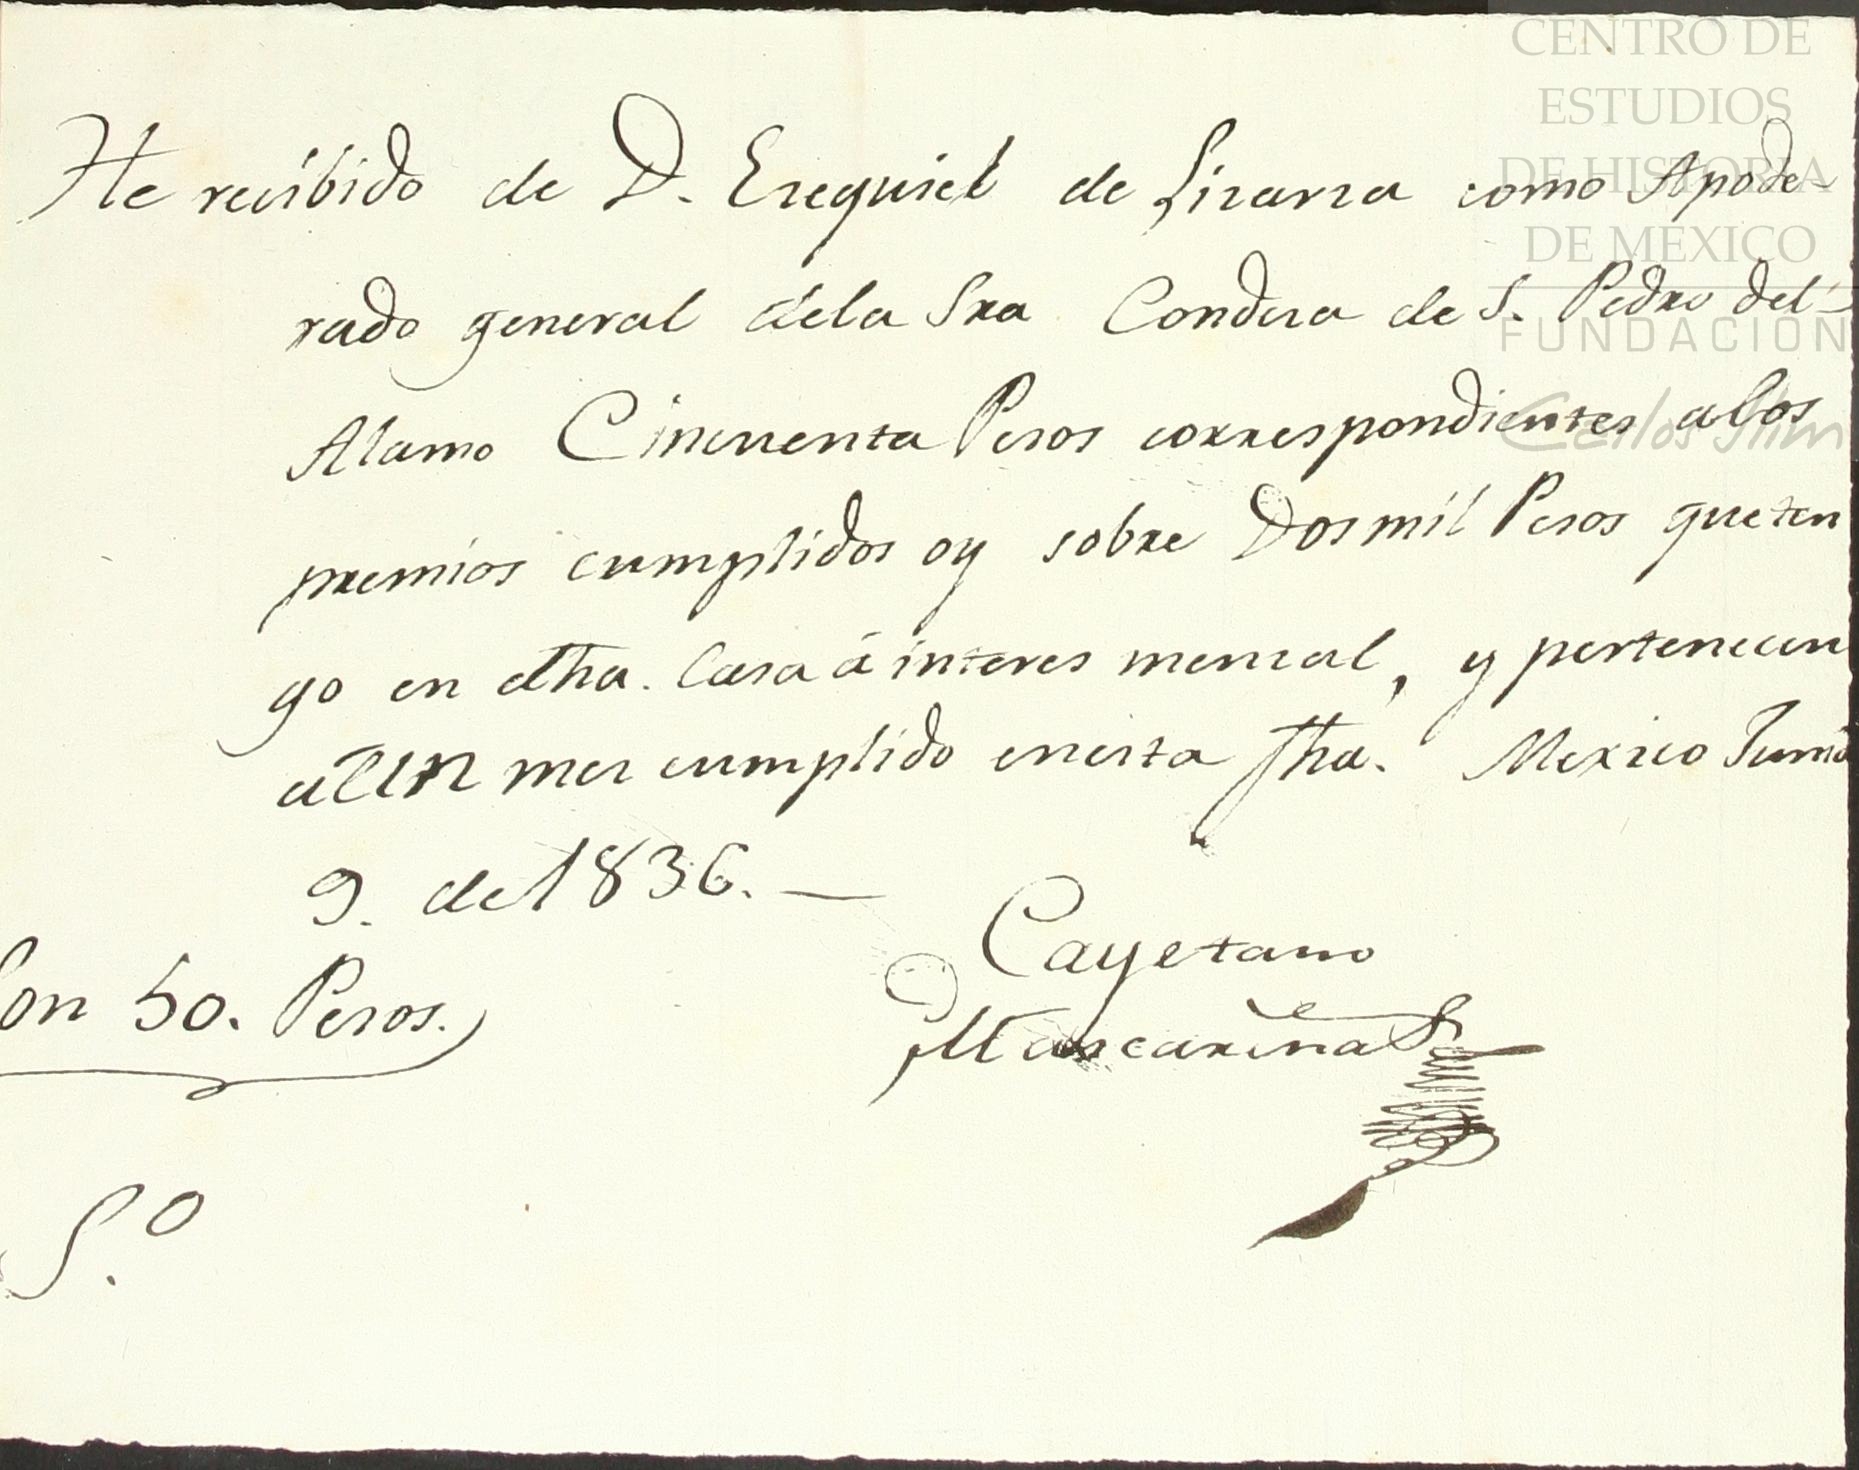 CENTRO DE
ESTUDIOS
DE HISTORIA
DE MÉXICO
FUNDACIÓN
Carlos Slim
He recibido de D. Ezequiel de Lizarza como Apode-
rado general dela Sra Condesa de S. Pedro del
Alamo Cincuenta Pesos correspondientes alos
premios cumplidos oy sobre Dosmil Pesos que ten
go en dha. Casa á interes mensal, y pertenecen
al UN mes cumplido enesta fha. Mexico Junio
9. de 1836.—
Cayetano
Mascareñas
Son 50. Pesos.